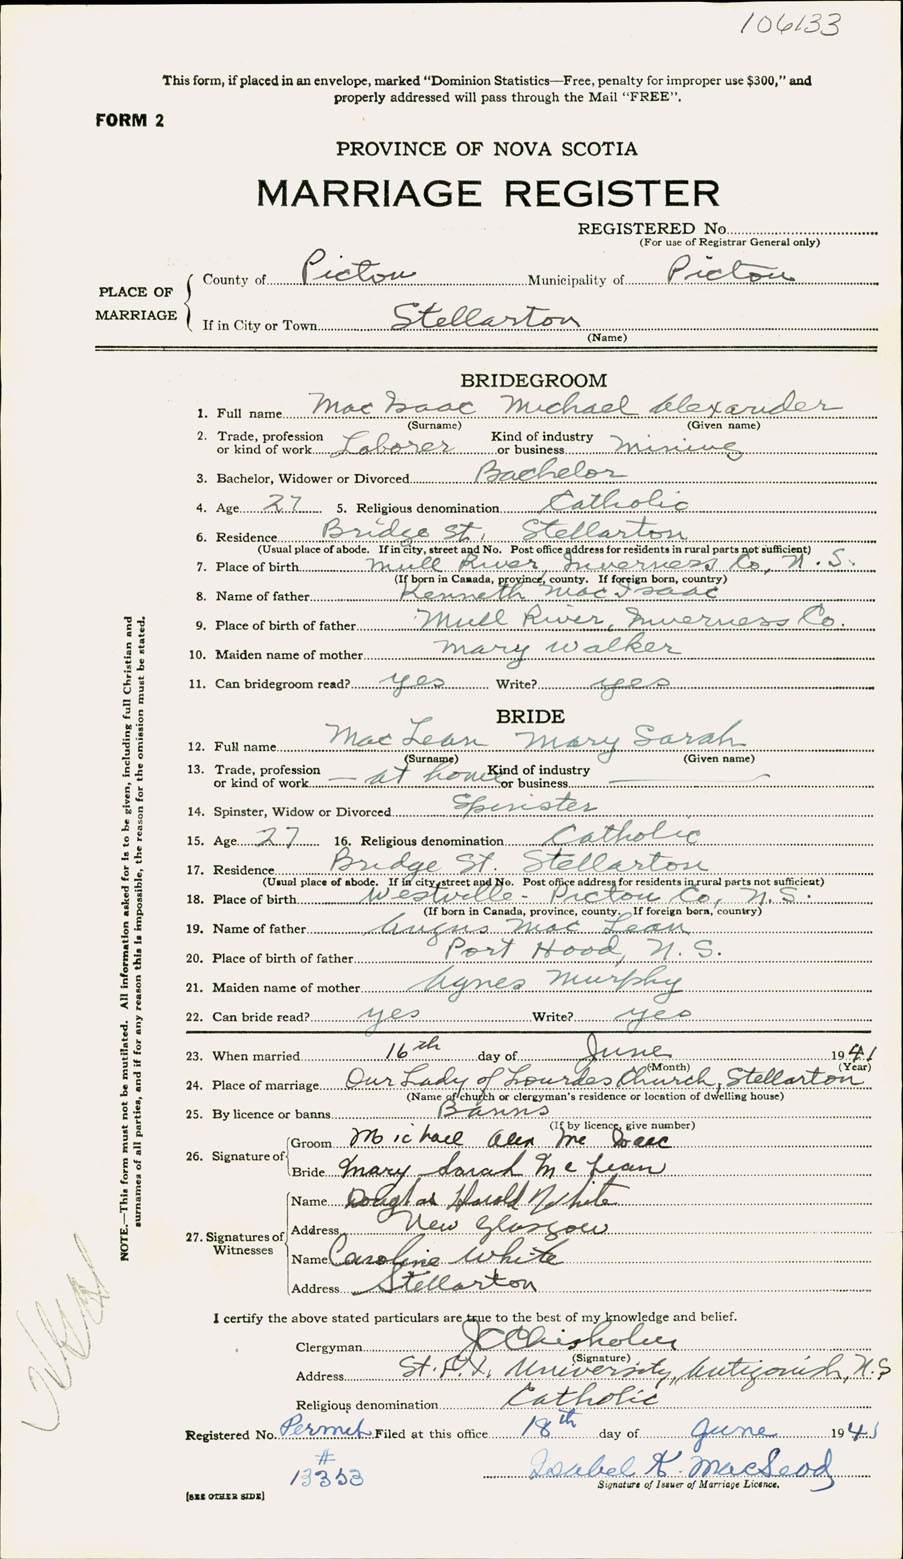 106133
This form, if placed in an envelope, marked "Dominion Statistics—Free, penalty for improper use $300," and
properly addressed will pass through the Mail "FREE".
FORM 2
PROVINCE OF NOVA SCOTIA
MARRIAGE REGISTER
REGISTERED No.
(For use of Registrar General only)
PLACE OF MARRIAGE
County of Pictou Municipality of Pictou
If in City or Town Stellarton
(Name)
BRIDEGROOM
1. Full name Mac Isaac Michael Alexander
(Surname) (Given name)
2. Trade, profession or kind of work Laborer Kind of industry or business mining
3. Bachelor, Widower or Divorced Bachelor
4. Age 27 5. Religious denomination Catholic
6. Residence Bridge St, Stellarton
(Usual place of abode. If in city, street and No. Post office address for residents in rural parts not sufficient)
7. Place of birth Mull River, Inverness Co, N.S.
(If born in Canada, province, county. If foreign born, country)
8. Name of father Kenneth Mac Isaac
9. Place of birth of father Mull River, Inverness Co.
10. Maiden name of mother Mary Walker
11. Can bridegroom read? yes Write? yes
BRIDE
12. Full name Mac Lean Mary Sarah
(Surname) (Given name)
13. Trade, profession or kind of work — at home Kind of industry or business —
14. Spinster, Widow or Divorced Spinster
15. Age 27 16. Religious denomination Catholic
17. Residence Bridge St. Stellarton
(Usual place of abode. If in city, street and No. Post office address for residents in rural parts not sufficient)
18. Place of birth Westville - Pictou Co, N.S.
(If born in Canada, province, county. If foreign born, country)
19. Name of father Angus Mac Lean
20. Place of birth of father Port Hood, N.S.
21. Maiden name of mother Agnes Murphy
22. Can bride read? yes Write? yes
23. When married 16th day of June 1941
(Month) (Year)
24. Place of marriage Our Lady of Lourdes Church, Stellarton
(Name of church or clergyman's residence or location of dwelling house)
25. By licence or banns Banns
(If by licence, give number)
26. Signature of Groom Michael Alex Mc Isaac
Bride Mary Sarah McLean
27. Signatures of Witnesses Name Douglas Harold White
Address New Glasgow
Name Caroline White
Address Stellarton
I certify the above stated particulars are true to the best of my knowledge and belief.
Clergyman J C Chisholm
(Signature)
Address St. F.X. University, Antigonish, N.S
Religious denomination Catholic
Registered No. Permit Filed at this office 18th day of June 1941
# 13353
Isabel K. MacLeod
Signature of Issuer of Marriage Licence.
[SEE OTHER SIDE]
NOTE.—This form must not be mutilated. All information asked for is to be given, including full Christian and
surnames of all parties, and if for any reason this is impossible, the reason for the omission must be stated.